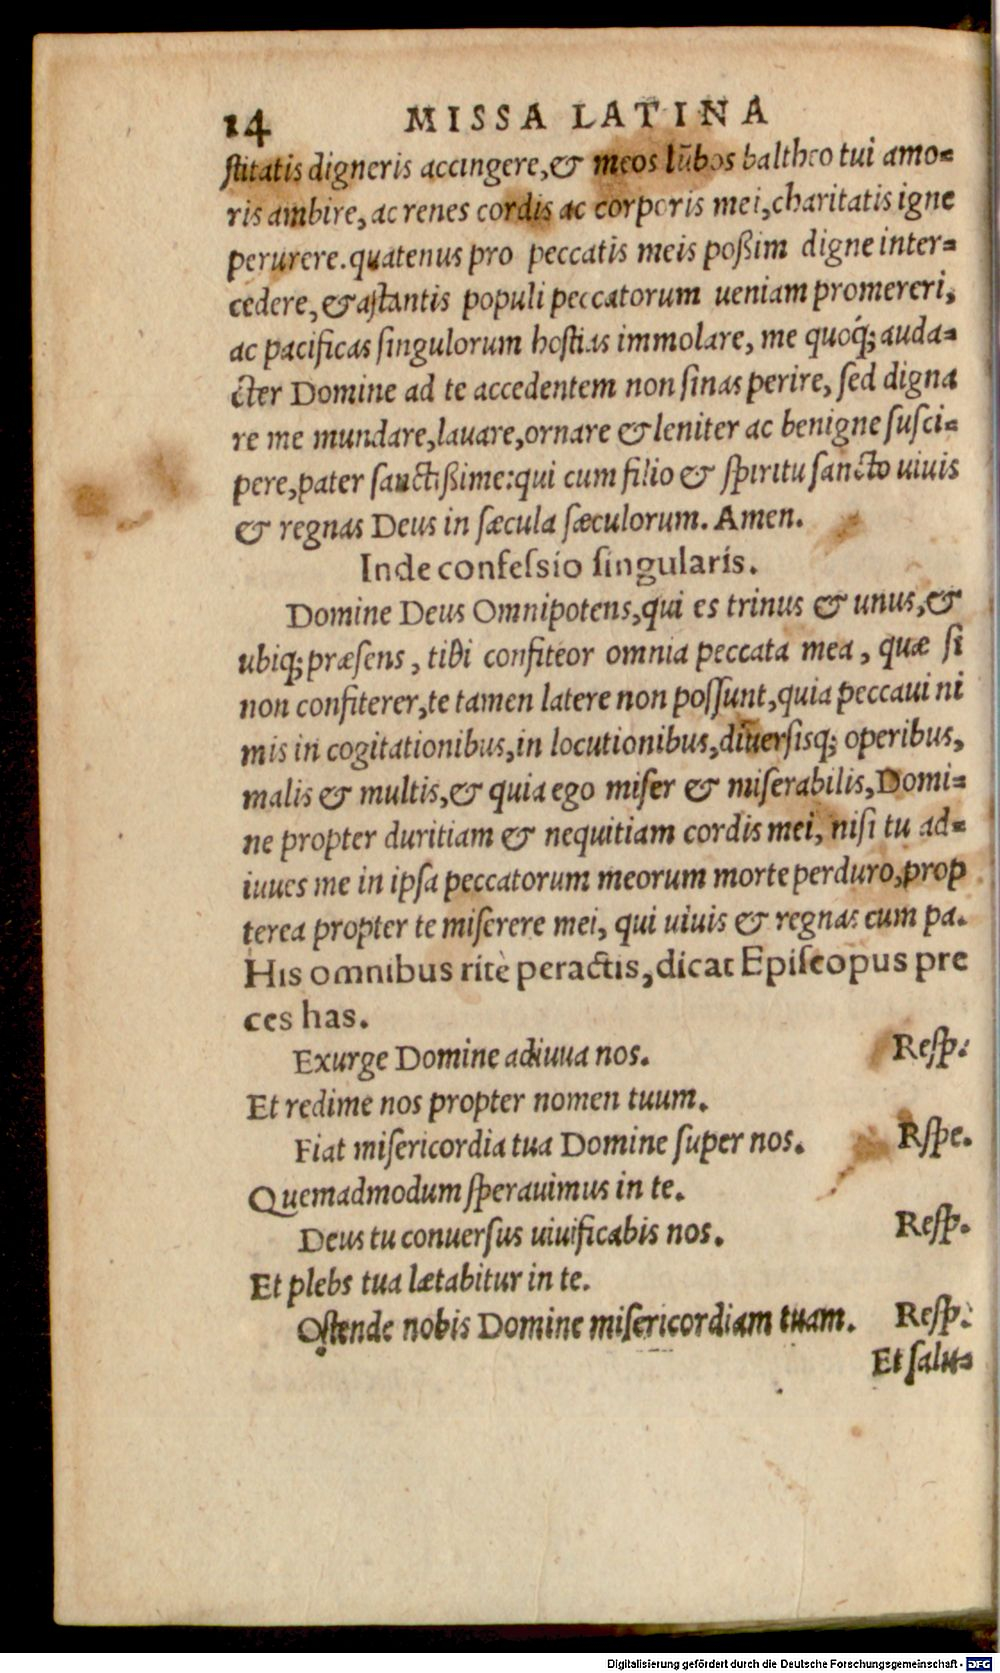 14 MISSA LATINA
ſtitatis digneris accingere,& meos lūbos baltheo tui amo=
ris ambire, ac renes cordis ac corporis mei,charitatis igne
perurere.quatenus pro peccatis meis poßim digne inter=
cedere,& aſtantis populi peccatorum ueniam promereri,
ac pacificas ſingulorum hoſtias immolare, me quoq́; auda=
cter Domine ad te accedentem non ſinas perire, ſed digna
re me mundare,lauare,ornare & leniter ac benigne ſuſci=
pere,pater ſanctißime:qui cum filio & ſpiritu ſancto uiuis
& regnas Deus in ſæcula ſæculorum. Amen.
Inde confeſsio ſingularis.
Domine Deus Omnipotens,qui es trinus & unus,&
ubiq; præſens, tibi confiteor omnia peccata mea, quæ ſi
non confiterer,te tamen latere non poſſunt,quia peccaui ni
mis in cogitationibus,in locutionibus,diuerſisq; operibus,
malis & multis,& quia ego miſer & miſerabilis,Domi=
ne propter duritiam & nequitiam cordis mei, niſi tu ad=
iuues me in ipſa peccatorum meorum morte perduro,prop
terea propter te miſerere mei, qui uiuis & regnas cum pa.
His omnibus ritè peractis,dicat Epiſcopus pre
ces has.
Exurge Domine adiuua nos. Reſp.
Et redime nos propter nomen tuum.
Fiat miſericordia tua Domine ſuper nos. Rſpe.
Quemadmodum ſperauimus in te.
Deus tu conuerſus uiuificabis nos. Reſp.
Et plebs tua lætabitur in te.
Oſtende nobis Domine miſericordiam tuam. Reſp.
Et ſalu=
Digitalisierung gefördert durch die Deutsche Forschungsgemeinschaft - DFG